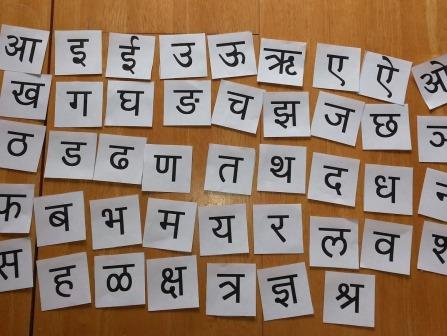 आ इ ई उ ऊ ऋ ए ऐ ओ
ख ग घ ङ च झ ज छ ञ
ठ ड ढ ण त थ द ध न
फ ब भ म य र ल व श
स ह ळ क्ष त्र ज्ञ श्र